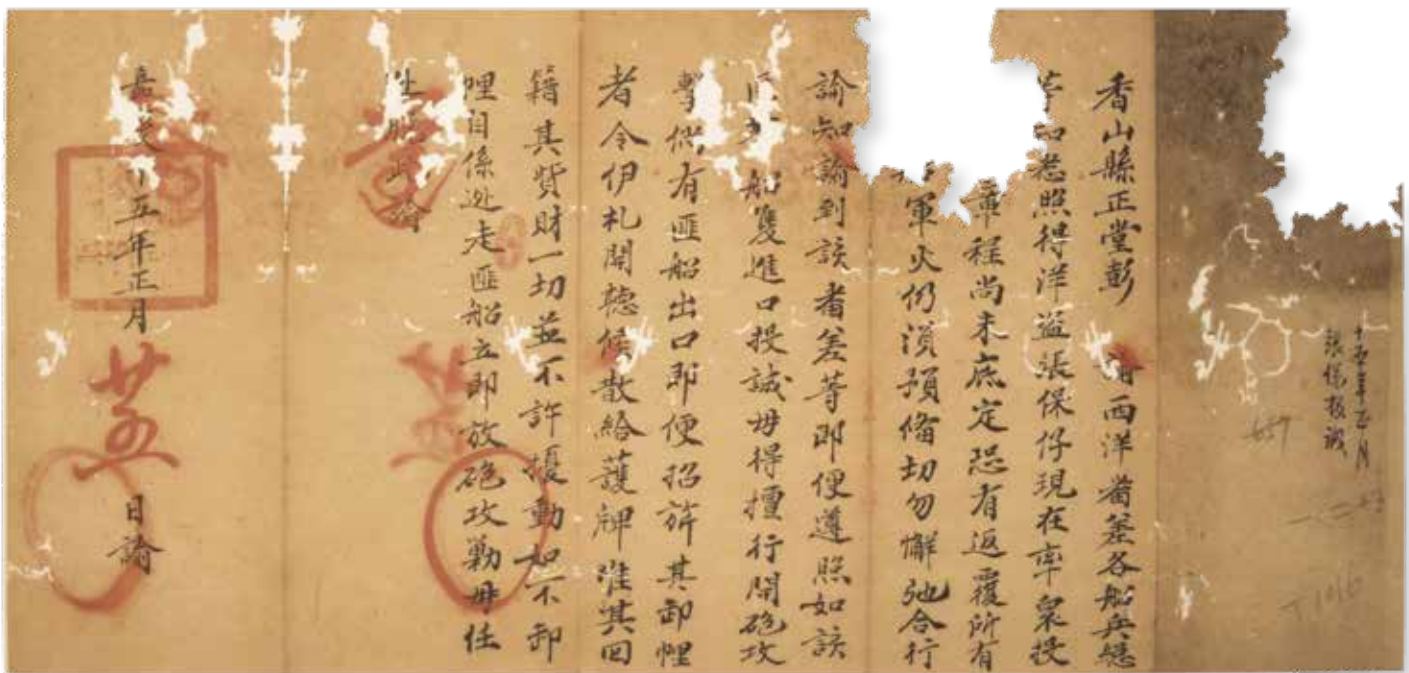 張保投誠
657
T1016
香山縣正堂彭 諭西洋蕃差各船兵總
等知悉照得洋盜張保仔現在率衆投
章程尚未底定恐有返覆所有
軍火仍須預備切勿懈弛合行
諭知諭到該蕃差等即便遵照如該
匪船隻進口投誠毋得擅行開砲攻
擊倘有匪船出口即便招旂其卸桅
者令伊札開聽候散給護牌准其回
籍其貲財一切並不許擾動如不卸
桅自係逃走匪船立即放砲攻勦毋任
此諭
嘉慶十五年正月 日諭